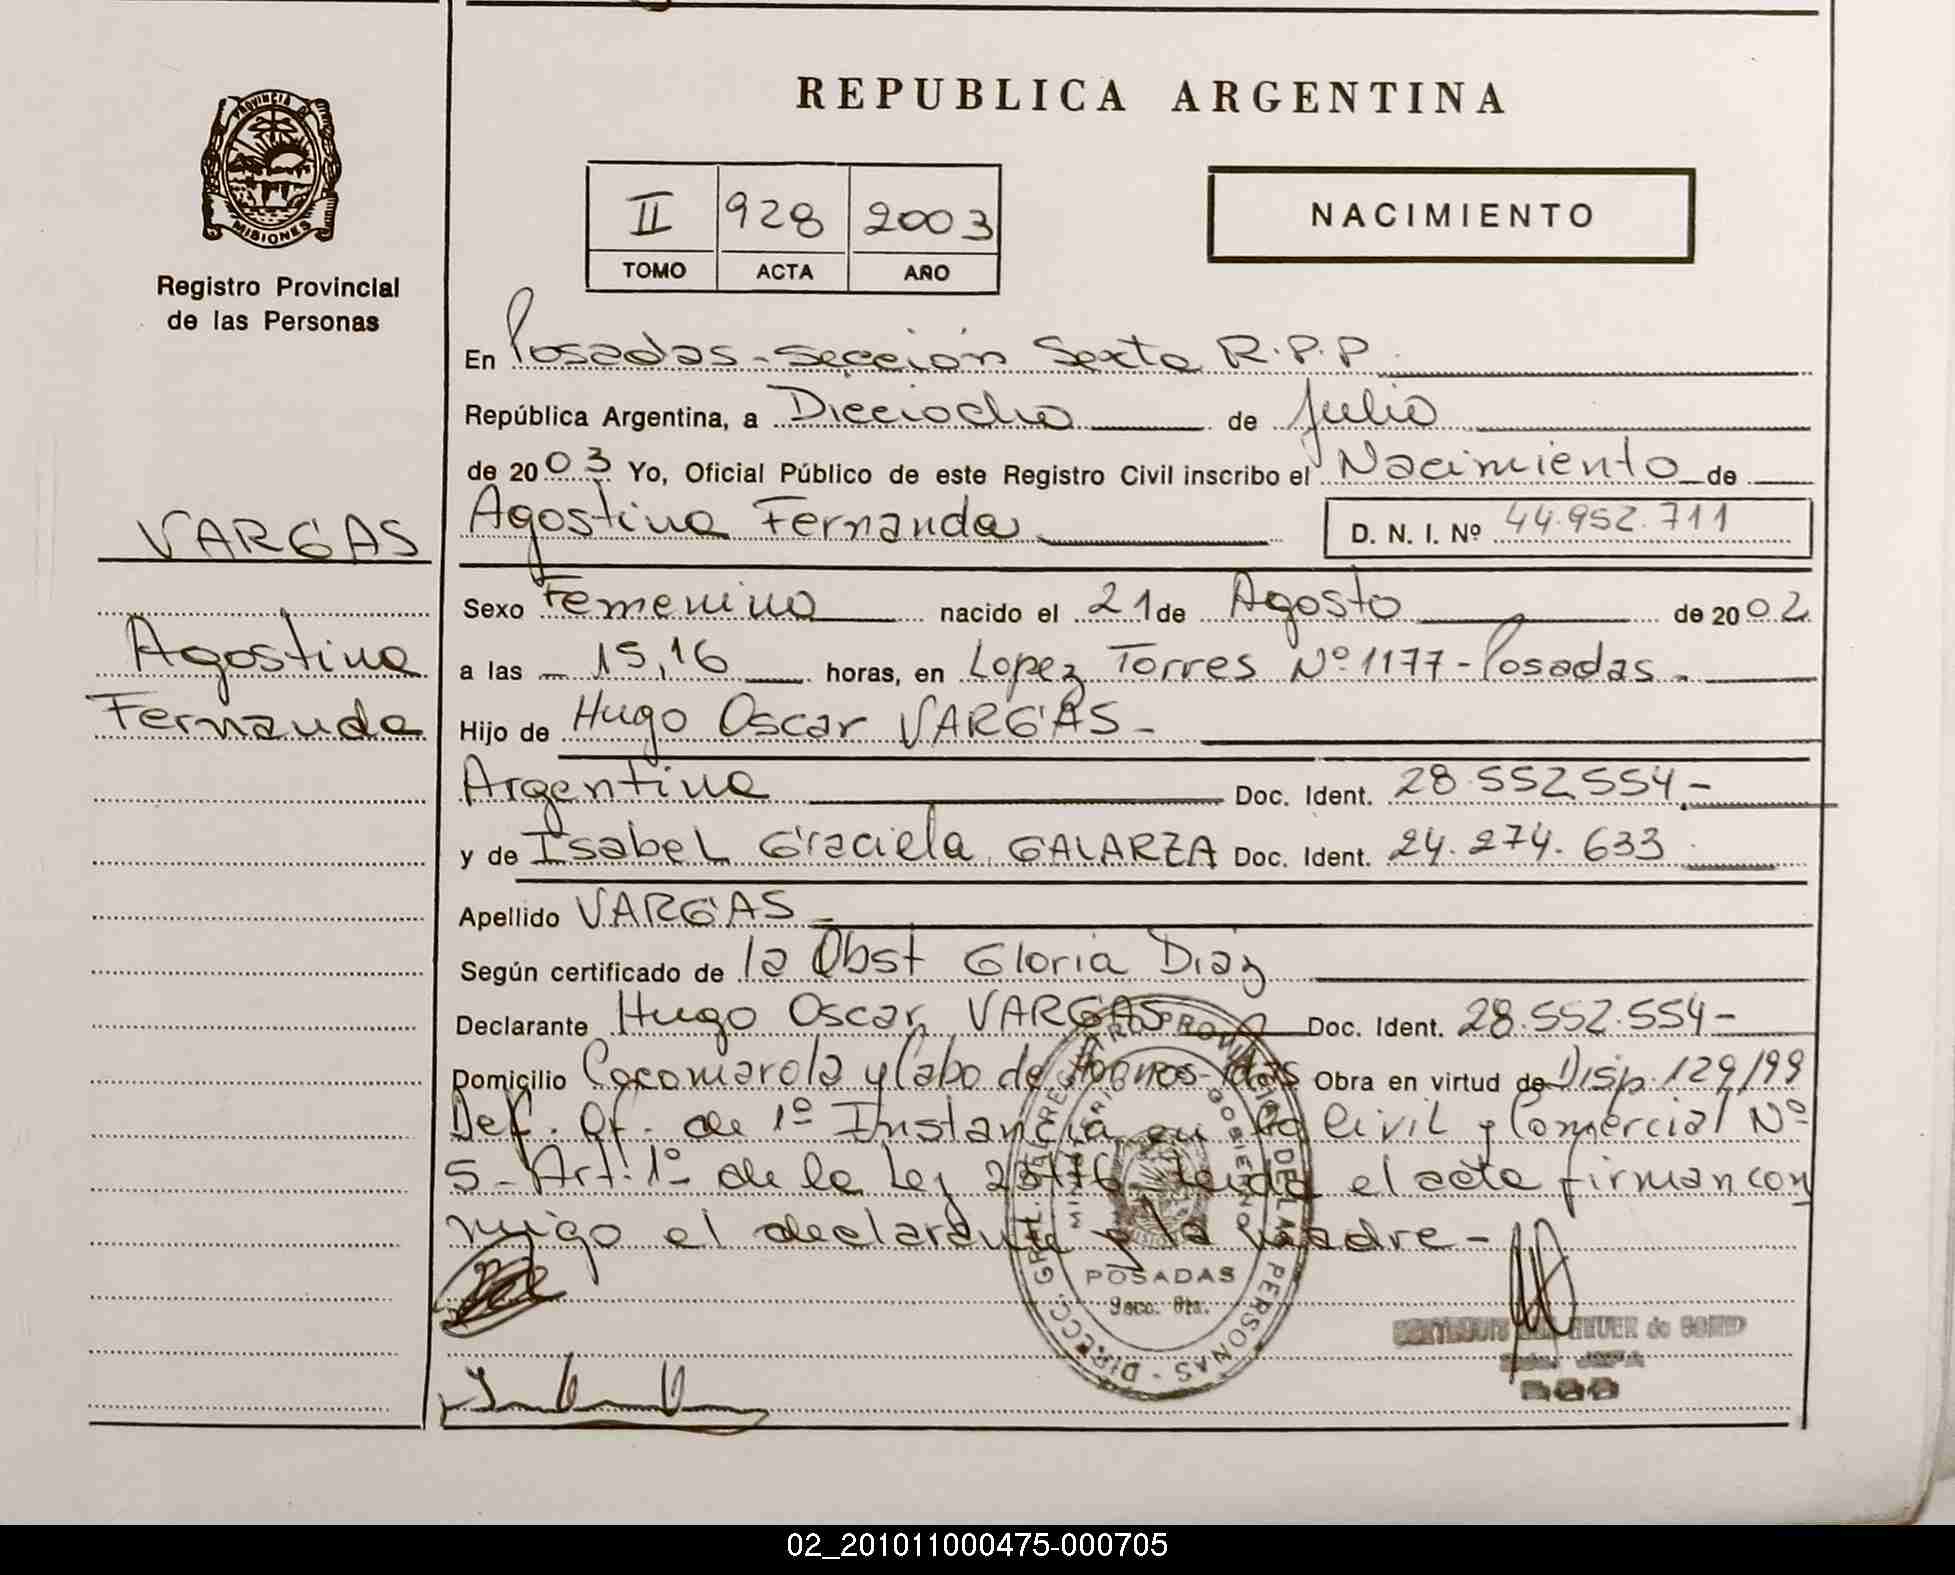 REPUBLICA ARGENTINA
PROVINCIA DE MISIONES
Registro Provincial
de las Personas
II 928 2003
TOMO ACTA AÑO
NACIMIENTO
En Posadas - Sección Sexta R.P.P.
República Argentina, a Dieciocho de Julio
de 2003 Yo, Oficial Público de este Registro Civil inscribo el Nacimiento de
VARGAS
Agostina Fernanda D. N. I. Nº 44.952.711
Sexo Femenino nacido el 21 de Agosto de 2002
Agostina
a las 15,16 horas, en Lopez Torres Nº 1177 - Posadas.
Fernanda
Hijo de Hugo Oscar VARGAS -
Argentina Doc. Ident. 28.552.554.-
y de Isabel Graciela GALARZA Doc. Ident. 24.274.633
Apellido VARGAS -
Según certificado de la Obst Gloria Diaz
Declarante Hugo Oscar VARGAS Doc. Ident. 28.552.554-
Domicilio Cocomarola y Cabo de Hornos - Pdas Obra en virtud de Disp. 129/99
Def. Of. de 1º Instancia en lo Civil y Comercial Nº
5 - Art. 1º de la Ley leida el acta firman con
migo el declarante y la madre -
DIRECC. GRAL. REGISTRO PROVINCIAL DE LAS PERSONAS
MINISTERIO GOBIERNO
POSADAS
Secc. 6ta.
02_201011000475-000705